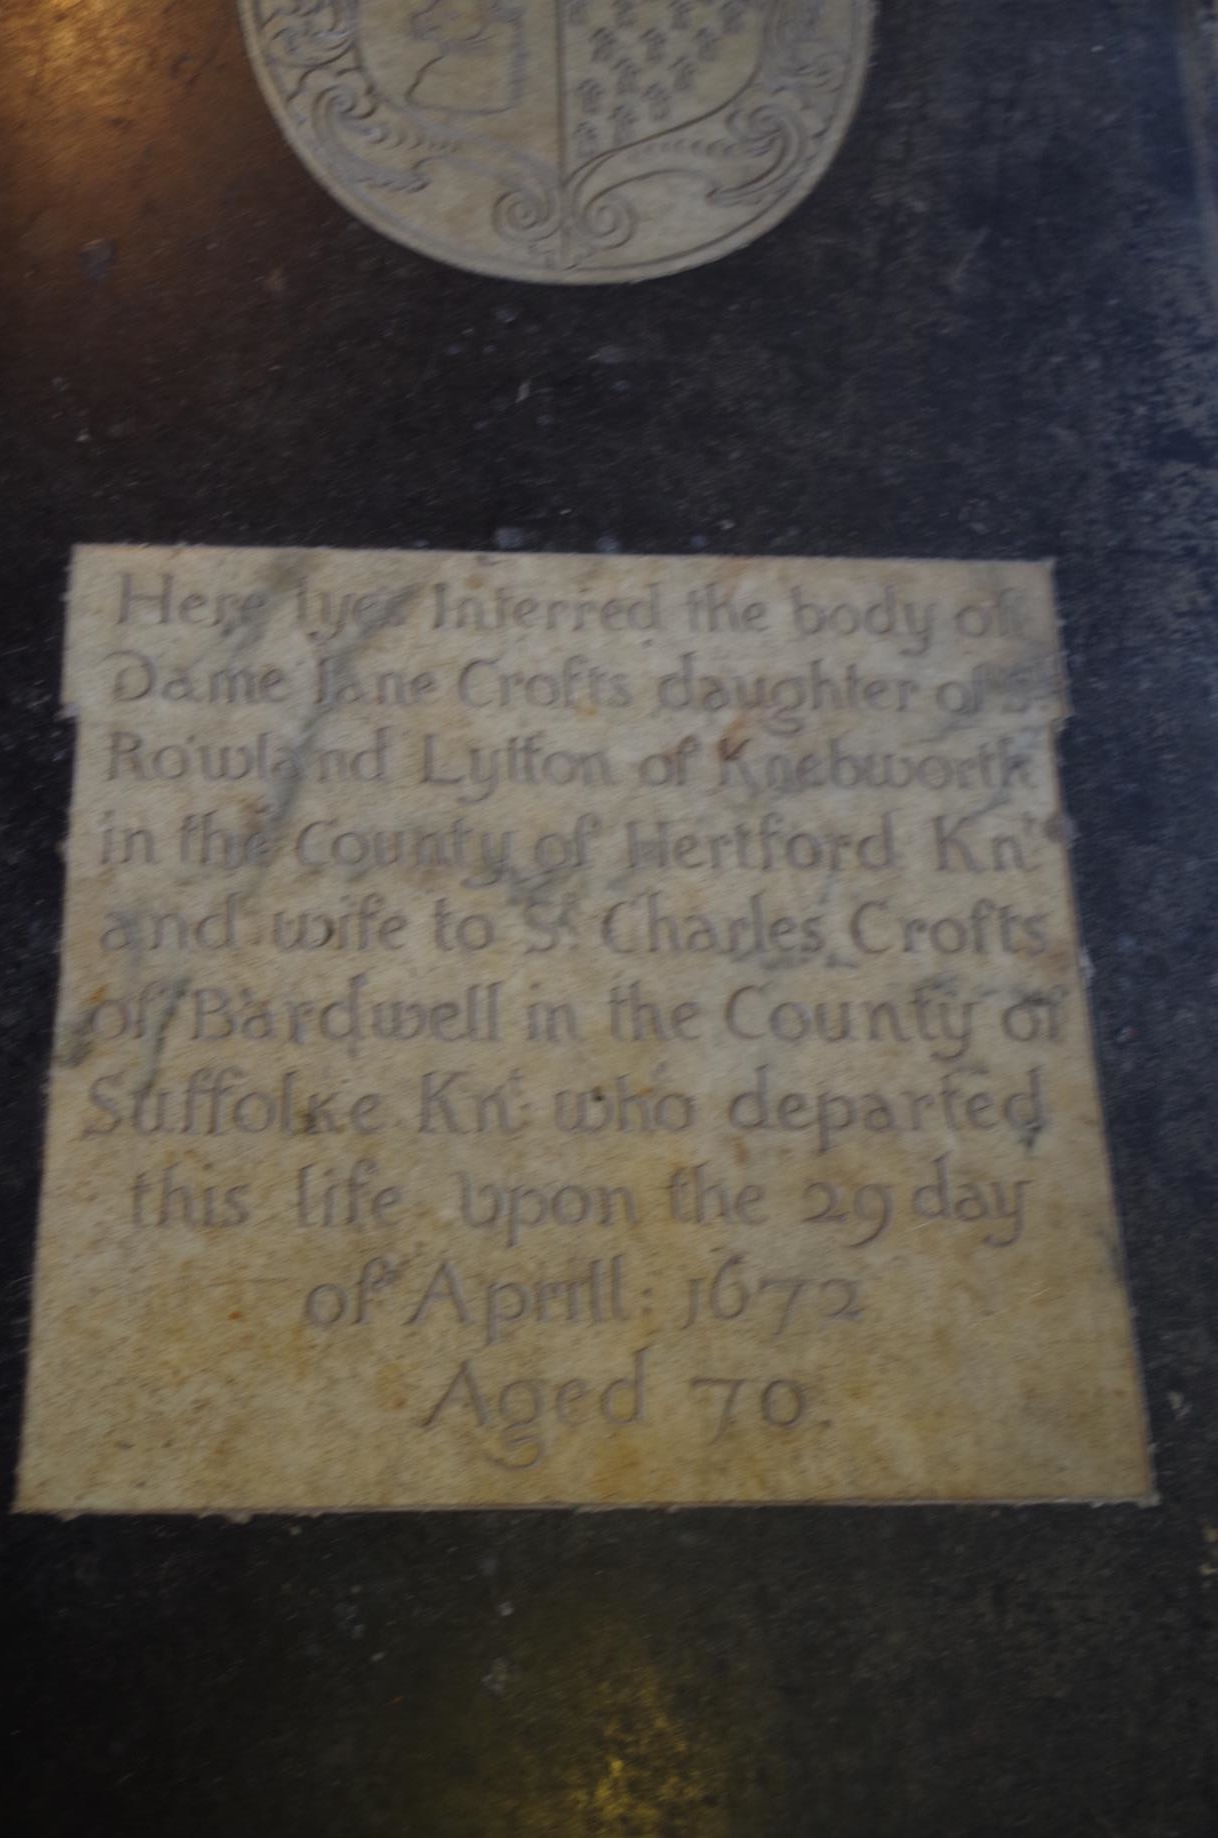 Here lyes Interred the body of
Dame Jane Crofts daughter of Sr
Rowland Lytton of Knebworth
in the County of Hertford Knt
and wife to Sr Charles Crofts
of Bardwell in the County of
Suffolke Knt: who departed
this life upon the 29 day
of Aprill: 1672
Aged 70.